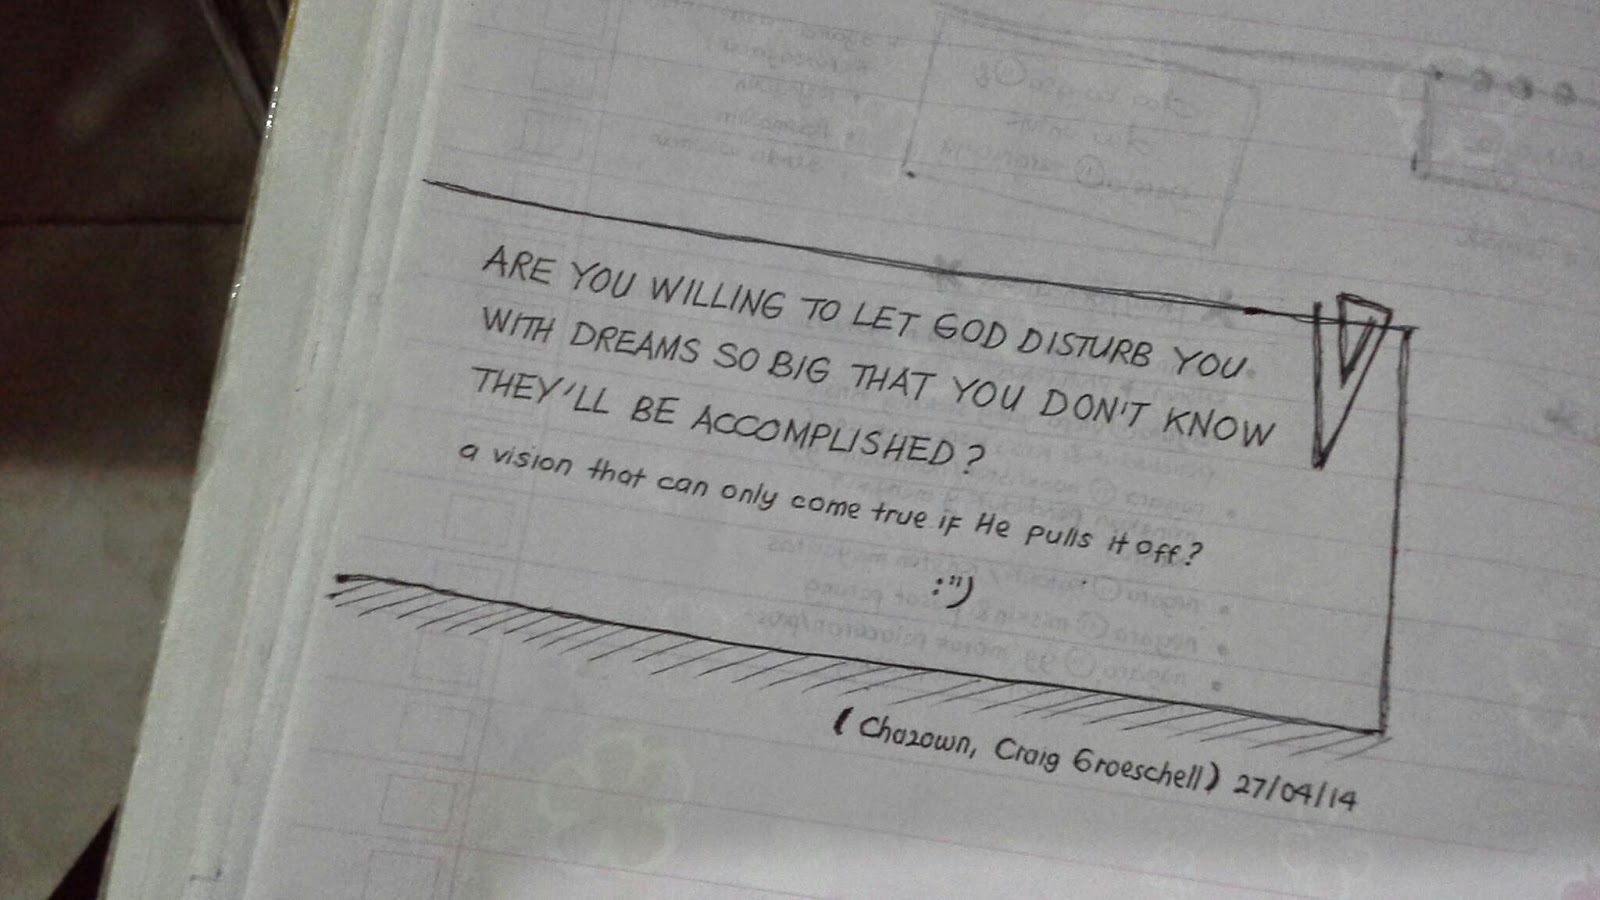 ARE YOU WILLING TO LET GOD DISTURB YOU
WITH DREAMS SO BIG THAT YOU DON'T KNOW
THEY'LL BE ACCOMPLISHED?
a vision that can only come true if He pulls it off?
:")
(Chazown, Craig Groeschell) 27/04/14